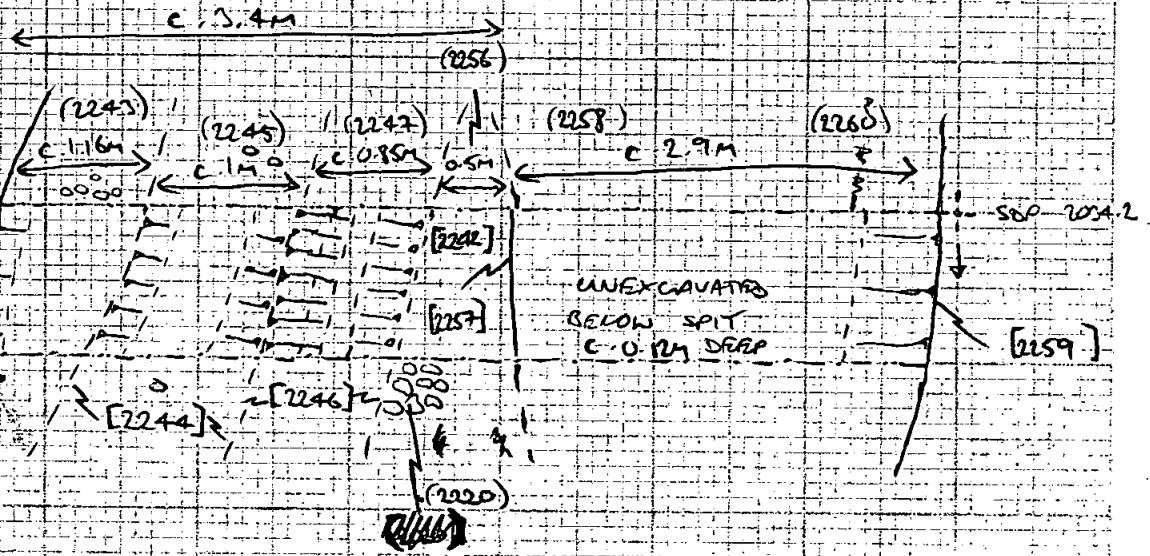 c. 3.4M
(2256)
(2243)
(2245)
(2247)
(2258)
(2260)
c 1.16M
c. 1M
c 0.85M
0.5M
c 2.9M
[2242]
[2257]
UNEXCAVATED
BELOW SPIT
C. 0.12M DEEP
[2259]
[2244]
[2246]
(2220)